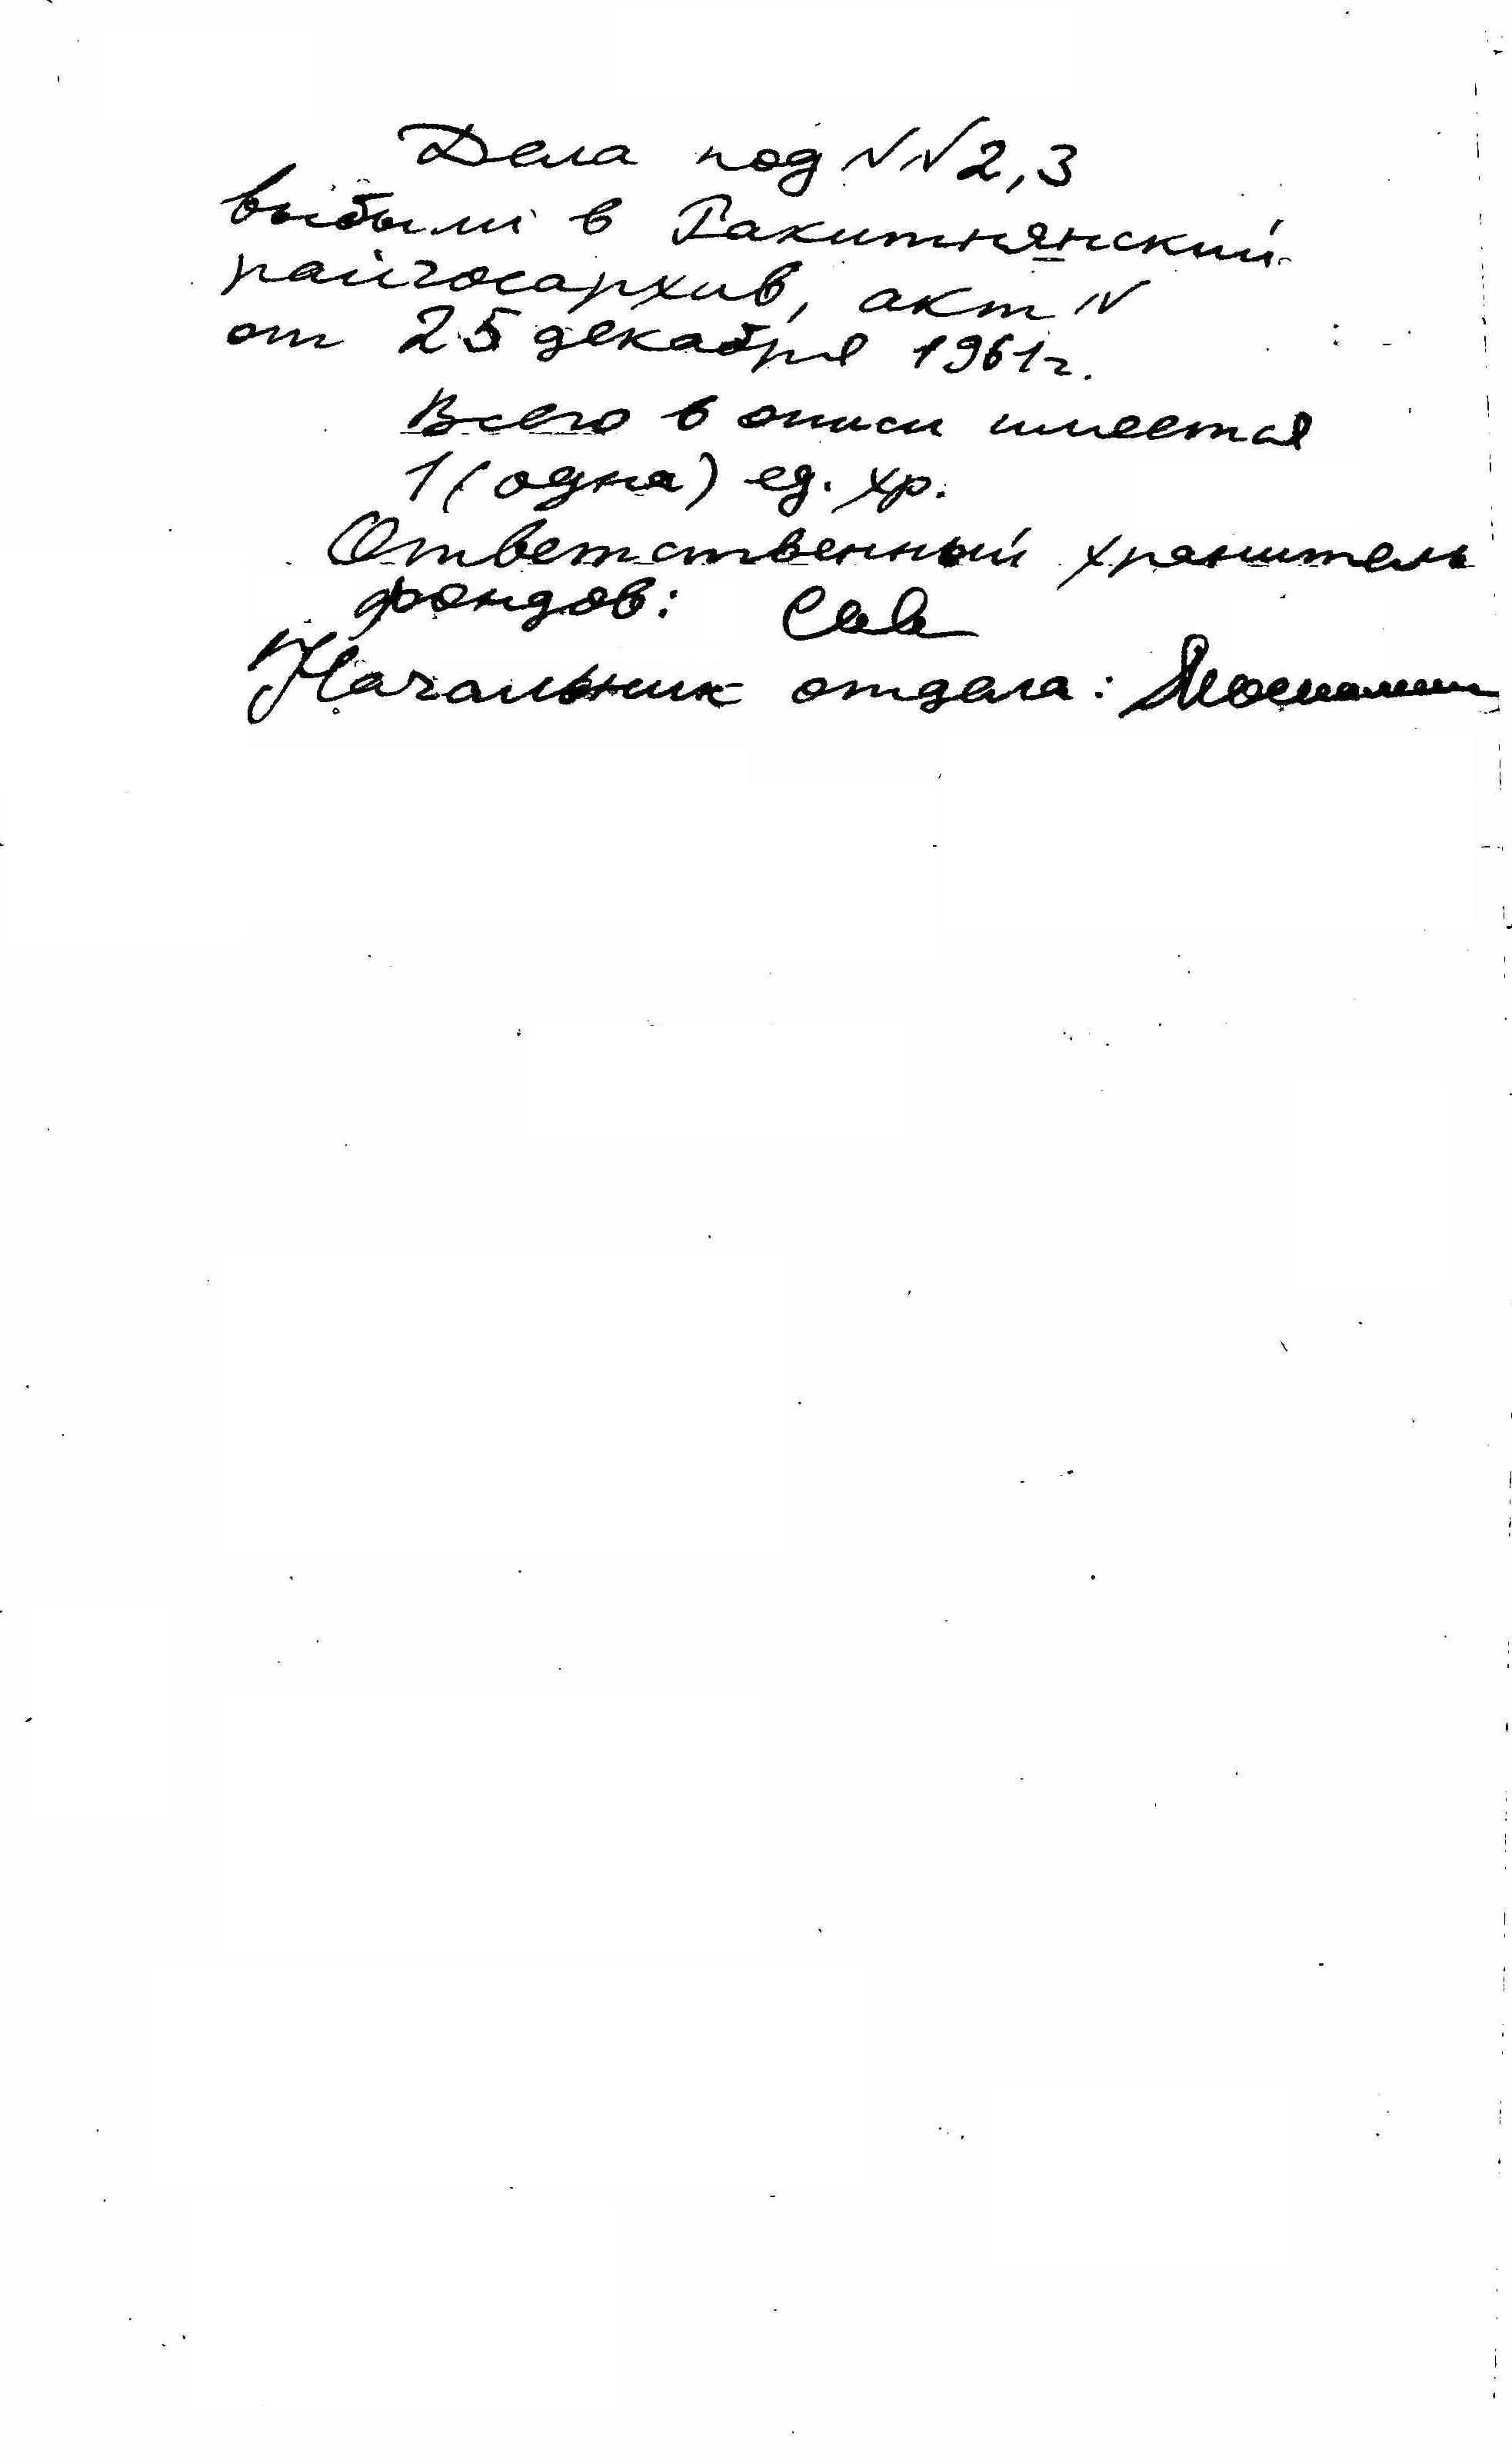 Дела под NN 2,3
выбыли в Ракитнянский
райгосархив, акт N
от 25 декабря 1961г.
Всего в описи имеется
1 (одна) ед. хр.
Ответственный хранитель
фондов:
Начальник отдела: